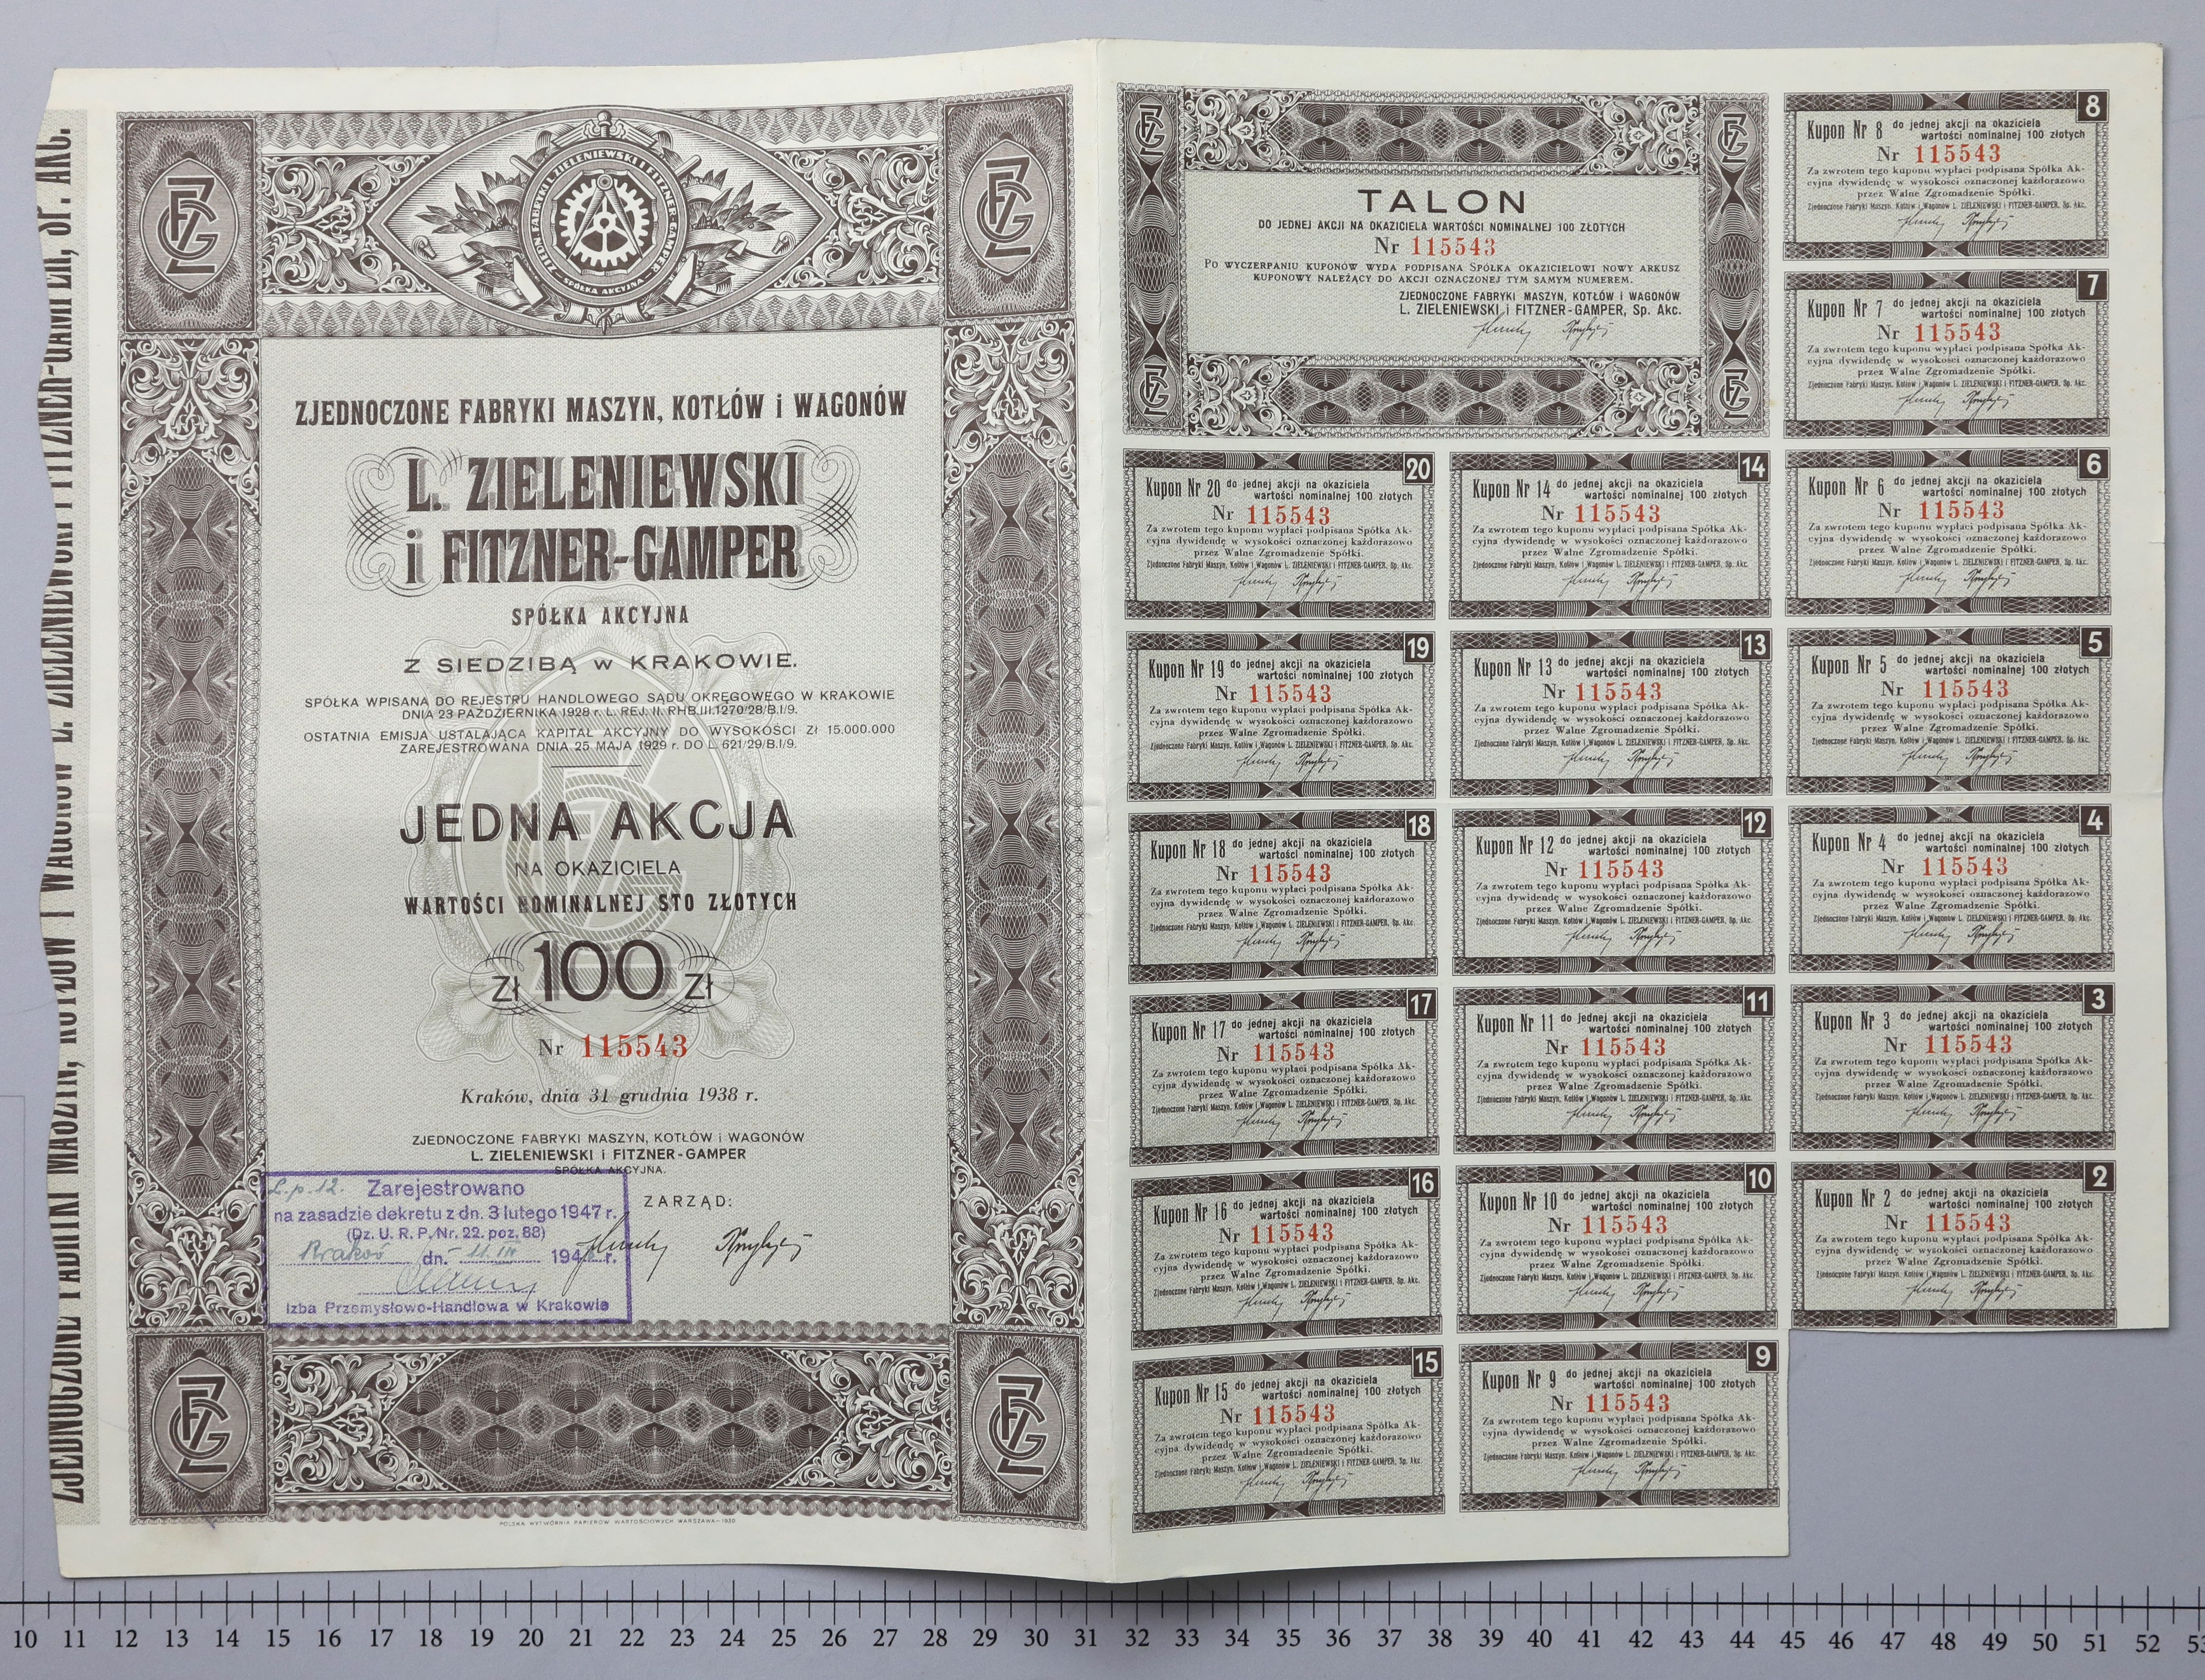 ZJEDNOCZONE FABRYKI MASZYN, KOTŁÓW I WAGONÓW L. ZIELENIEWSKI I FITZNER-GAMPER, SP. AKC.
ZJEDN. FABRYKI L. ZIELENIEWSKI I FITZNER-GAMPER
SPÓŁKA AKCYJNA
ZJEDNOCZONE FABRYKI MASZYN, KOTŁÓW i WAGONÓW
L. ZIELENIEWSKI
i FITZNER-GAMPER
SPÓŁKA AKCYJNA
Z SIEDZIBĄ w KRAKOWIE.
SPÓŁKA WPISANA DO REJESTRU HANDLOWEGO SĄDU OKRĘGOWEGO W KRAKOWIE
DNIA 23 PAŹDZIERNIKA 1928 r. L. REJ. II. RHB.III.1270/28/B.I/9.
OSTATNIA EMISJA USTALAJĄCA KAPITAŁ AKCYJNY DO WYSOKOŚCI Zł 15.000.000
ZAREJESTROWANA DNIA 25 MAJA 1929 r. DO L. 621/29/B.I/9.
JEDNA AKCJA
NA OKAZICIELA
WARTOŚCI NOMINALNEJ STO ZŁOTYCH
Zł 100 Zł
Nr 115543
Kraków, dnia 31 grudnia 1938 r.
ZJEDNOCZONE FABRYKI MASZYN, KOTŁÓW i WAGONÓW
L. ZIELENIEWSKI i FITZNER-GAMPER
SPÓŁKA AKCYJNA.
ZARZĄD:
L.p. 12. Zarejestrowano
na zasadzie dekretu z dn. 3 lutego 1947 r.
(Dz. U. R. P. Nr. 22. poz. 88)
Kraków dn. 11. IV 194 r.
Izba Przemysłowo-Handlowa w Krakowie
POLSKA WYTWÓRNIA PAPIERÓW WARTOŚCIOWYCH WARSZAWA-1930
TALON
DO JEDNEJ AKCJI NA OKAZICIELA WARTOŚCI NOMINALNEJ 100 ZŁOTYCH
Nr 115543
PO WYCZERPANIU KUPONÓW WYDA PODPISANA SPÓŁKA OKAZICIELOWI NOWY ARKUSZ
KUPONOWY NALEŻĄCY DO AKCJI OZNACZONEJ TYM SAMYM NUMEREM.
ZJEDNOCZONE FABRYKI MASZYN, KOTŁÓW i WAGONÓW
L. ZIELENIEWSKI i FITZNER-GAMPER, Sp. Akc.
20
Kupon Nr 20 do jednej akcji na okaziciela
wartości nominalnej 100 złotych
Nr 115543
Za zwrotem tego kuponu wypłaci podpisana Spółka Ak-
cyjna dywidendę w wysokości oznaczonej każdorazowo
przez Walne Zgromadzenie Spółki.
Zjednoczone Fabryki Maszyn, Kotłów i Wagonów L. ZIELENIEWSKI i FITZNER-GAMPER, Sp. Akc.
19
Kupon Nr 19 do jednej akcji na okaziciela
wartości nominalnej 100 złotych
Nr 115543
Za zwrotem tego kuponu wypłaci podpisana Spółka Ak-
cyjna dywidendę w wysokości oznaczonej każdorazowo
przez Walne Zgromadzenie Spółki.
Zjednoczone Fabryki Maszyn, Kotłów i Wagonów L. ZIELENIEWSKI i FITZNER-GAMPER, Sp. Akc.
18
Kupon Nr 18 do jednej akcji na okaziciela
wartości nominalnej 100 złotych
Nr 115543
Za zwrotem tego kuponu wypłaci podpisana Spółka Ak-
cyjna dywidendę w wysokości oznaczonej każdorazowo
przez Walne Zgromadzenie Spółki.
Zjednoczone Fabryki Maszyn, Kotłów i Wagonów L. ZIELENIEWSKI i FITZNER-GAMPER, Sp. Akc.
17
Kupon Nr 17 do jednej akcji na okaziciela
wartości nominalnej 100 złotych
Nr 115543
Za zwrotem tego kuponu wypłaci podpisana Spółka Ak-
cyjna dywidendę w wysokości oznaczonej każdorazowo
przez Walne Zgromadzenie Spółki.
Zjednoczone Fabryki Maszyn, Kotłów i Wagonów L. ZIELENIEWSKI i FITZNER-GAMPER, Sp. Akc.
16
Kupon Nr 16 do jednej akcji na okaziciela
wartości nominalnej 100 złotych
Nr 115543
Za zwrotem tego kuponu wypłaci podpisana Spółka Ak-
cyjna dywidendę w wysokości oznaczonej każdorazowo
przez Walne Zgromadzenie Spółki.
Zjednoczone Fabryki Maszyn, Kotłów i Wagonów L. ZIELENIEWSKI i FITZNER-GAMPER, Sp. Akc.
15
Kupon Nr 15 do jednej akcji na okaziciela
wartości nominalnej 100 złotych
Nr 115543
Za zwrotem tego kuponu wypłaci podpisana Spółka Ak-
cyjna dywidendę w wysokości oznaczonej każdorazowo
przez Walne Zgromadzenie Spółki.
Zjednoczone Fabryki Maszyn, Kotłów i Wagonów L. ZIELENIEWSKI i FITZNER-GAMPER, Sp. Akc.
14
Kupon Nr 14 do jednej akcji na okaziciela
wartości nominalnej 100 złotych
Nr 115543
Za zwrotem tego kuponu wypłaci podpisana Spółka Ak-
cyjna dywidendę w wysokości oznaczonej każdorazowo
przez Walne Zgromadzenie Spółki.
Zjednoczone Fabryki Maszyn, Kotłów i Wagonów L. ZIELENIEWSKI i FITZNER-GAMPER, Sp. Akc.
13
Kupon Nr 13 do jednej akcji na okaziciela
wartości nominalnej 100 złotych
Nr 115543
Za zwrotem tego kuponu wypłaci podpisana Spółka Ak-
cyjna dywidendę w wysokości oznaczonej każdorazowo
przez Walne Zgromadzenie Spółki.
Zjednoczone Fabryki Maszyn, Kotłów i Wagonów L. ZIELENIEWSKI i FITZNER-GAMPER, Sp. Akc.
12
Kupon Nr 12 do jednej akcji na okaziciela
wartości nominalnej 100 złotych
Nr 115543
Za zwrotem tego kuponu wypłaci podpisana Spółka Ak-
cyjna dywidendę w wysokości oznaczonej każdorazowo
przez Walne Zgromadzenie Spółki.
Zjednoczone Fabryki Maszyn, Kotłów i Wagonów L. ZIELENIEWSKI i FITZNER-GAMPER, Sp. Akc.
11
Kupon Nr 11 do jednej akcji na okaziciela
wartości nominalnej 100 złotych
Nr 115543
Za zwrotem tego kuponu wypłaci podpisana Spółka Ak-
cyjna dywidendę w wysokości oznaczonej każdorazowo
przez Walne Zgromadzenie Spółki.
Zjednoczone Fabryki Maszyn, Kotłów i Wagonów L. ZIELENIEWSKI i FITZNER-GAMPER, Sp. Akc.
10
Kupon Nr 10 do jednej akcji na okaziciela
wartości nominalnej 100 złotych
Nr 115543
Za zwrotem tego kuponu wypłaci podpisana Spółka Ak-
cyjna dywidendę w wysokości oznaczonej każdorazowo
przez Walne Zgromadzenie Spółki.
Zjednoczone Fabryki Maszyn, Kotłów i Wagonów L. ZIELENIEWSKI i FITZNER-GAMPER, Sp. Akc.
9
Kupon Nr 9 do jednej akcji na okaziciela
wartości nominalnej 100 złotych
Nr 115543
Za zwrotem tego kuponu wypłaci podpisana Spółka Ak-
cyjna dywidendę w wysokości oznaczonej każdorazowo
przez Walne Zgromadzenie Spółki.
Zjednoczone Fabryki Maszyn, Kotłów i Wagonów L. ZIELENIEWSKI i FITZNER-GAMPER, Sp. Akc.
8
Kupon Nr 8 do jednej akcji na okaziciela
wartości nominalnej 100 złotych
Nr 115543
Za zwrotem tego kuponu wypłaci podpisana Spółka Ak-
cyjna dywidendę w wysokości oznaczonej każdorazowo
przez Walne Zgromadzenie Spółki.
Zjednoczone Fabryki Maszyn, Kotłów i Wagonów L. ZIELENIEWSKI i FITZNER-GAMPER, Sp. Akc.
7
Kupon Nr 7 do jednej akcji na okaziciela
wartości nominalnej 100 złotych
Nr 115543
Za zwrotem tego kuponu wypłaci podpisana Spółka Ak-
cyjna dywidendę w wysokości oznaczonej każdorazowo
przez Walne Zgromadzenie Spółki.
Zjednoczone Fabryki Maszyn, Kotłów i Wagonów L. ZIELENIEWSKI i FITZNER-GAMPER, Sp. Akc.
6
Kupon Nr 6 do jednej akcji na okaziciela
wartości nominalnej 100 złotych
Nr 115543
Za zwrotem tego kuponu wypłaci podpisana Spółka Ak-
cyjna dywidendę w wysokości oznaczonej każdorazowo
przez Walne Zgromadzenie Spółki.
Zjednoczone Fabryki Maszyn, Kotłów i Wagonów L. ZIELENIEWSKI i FITZNER-GAMPER, Sp. Akc.
5
Kupon Nr 5 do jednej akcji na okaziciela
wartości nominalnej 100 złotych
Nr 115543
Za zwrotem tego kuponu wypłaci podpisana Spółka Ak-
cyjna dywidendę w wysokości oznaczonej każdorazowo
przez Walne Zgromadzenie Spółki.
Zjednoczone Fabryki Maszyn, Kotłów i Wagonów L. ZIELENIEWSKI i FITZNER-GAMPER, Sp. Akc.
4
Kupon Nr 4 do jednej akcji na okaziciela
wartości nominalnej 100 złotych
Nr 115543
Za zwrotem tego kuponu wypłaci podpisana Spółka Ak-
cyjna dywidendę w wysokości oznaczonej każdorazowo
przez Walne Zgromadzenie Spółki.
Zjednoczone Fabryki Maszyn, Kotłów i Wagonów L. ZIELENIEWSKI i FITZNER-GAMPER, Sp. Akc.
3
Kupon Nr 3 do jednej akcji na okaziciela
wartości nominalnej 100 złotych
Nr 115543
Za zwrotem tego kuponu wypłaci podpisana Spółka Ak-
cyjna dywidendę w wysokości oznaczonej każdorazowo
przez Walne Zgromadzenie Spółki.
Zjednoczone Fabryki Maszyn, Kotłów i Wagonów L. ZIELENIEWSKI i FITZNER-GAMPER, Sp. Akc.
2
Kupon Nr 2 do jednej akcji na okaziciela
wartości nominalnej 100 złotych
Nr 115543
Za zwrotem tego kuponu wypłaci podpisana Spółka Ak-
cyjna dywidendę w wysokości oznaczonej każdorazowo
przez Walne Zgromadzenie Spółki.
Zjednoczone Fabryki Maszyn, Kotłów i Wagonów L. ZIELENIEWSKI i FITZNER-GAMPER, Sp. Akc.
10 11 12 13 14 15 16 17 18 19 20 21 22 23 24 25 26 27 28 29 30 31 32 33 34 35 36 37 38 39 40 41 42 43 44 45 46 47 48 49 50 51 52 53